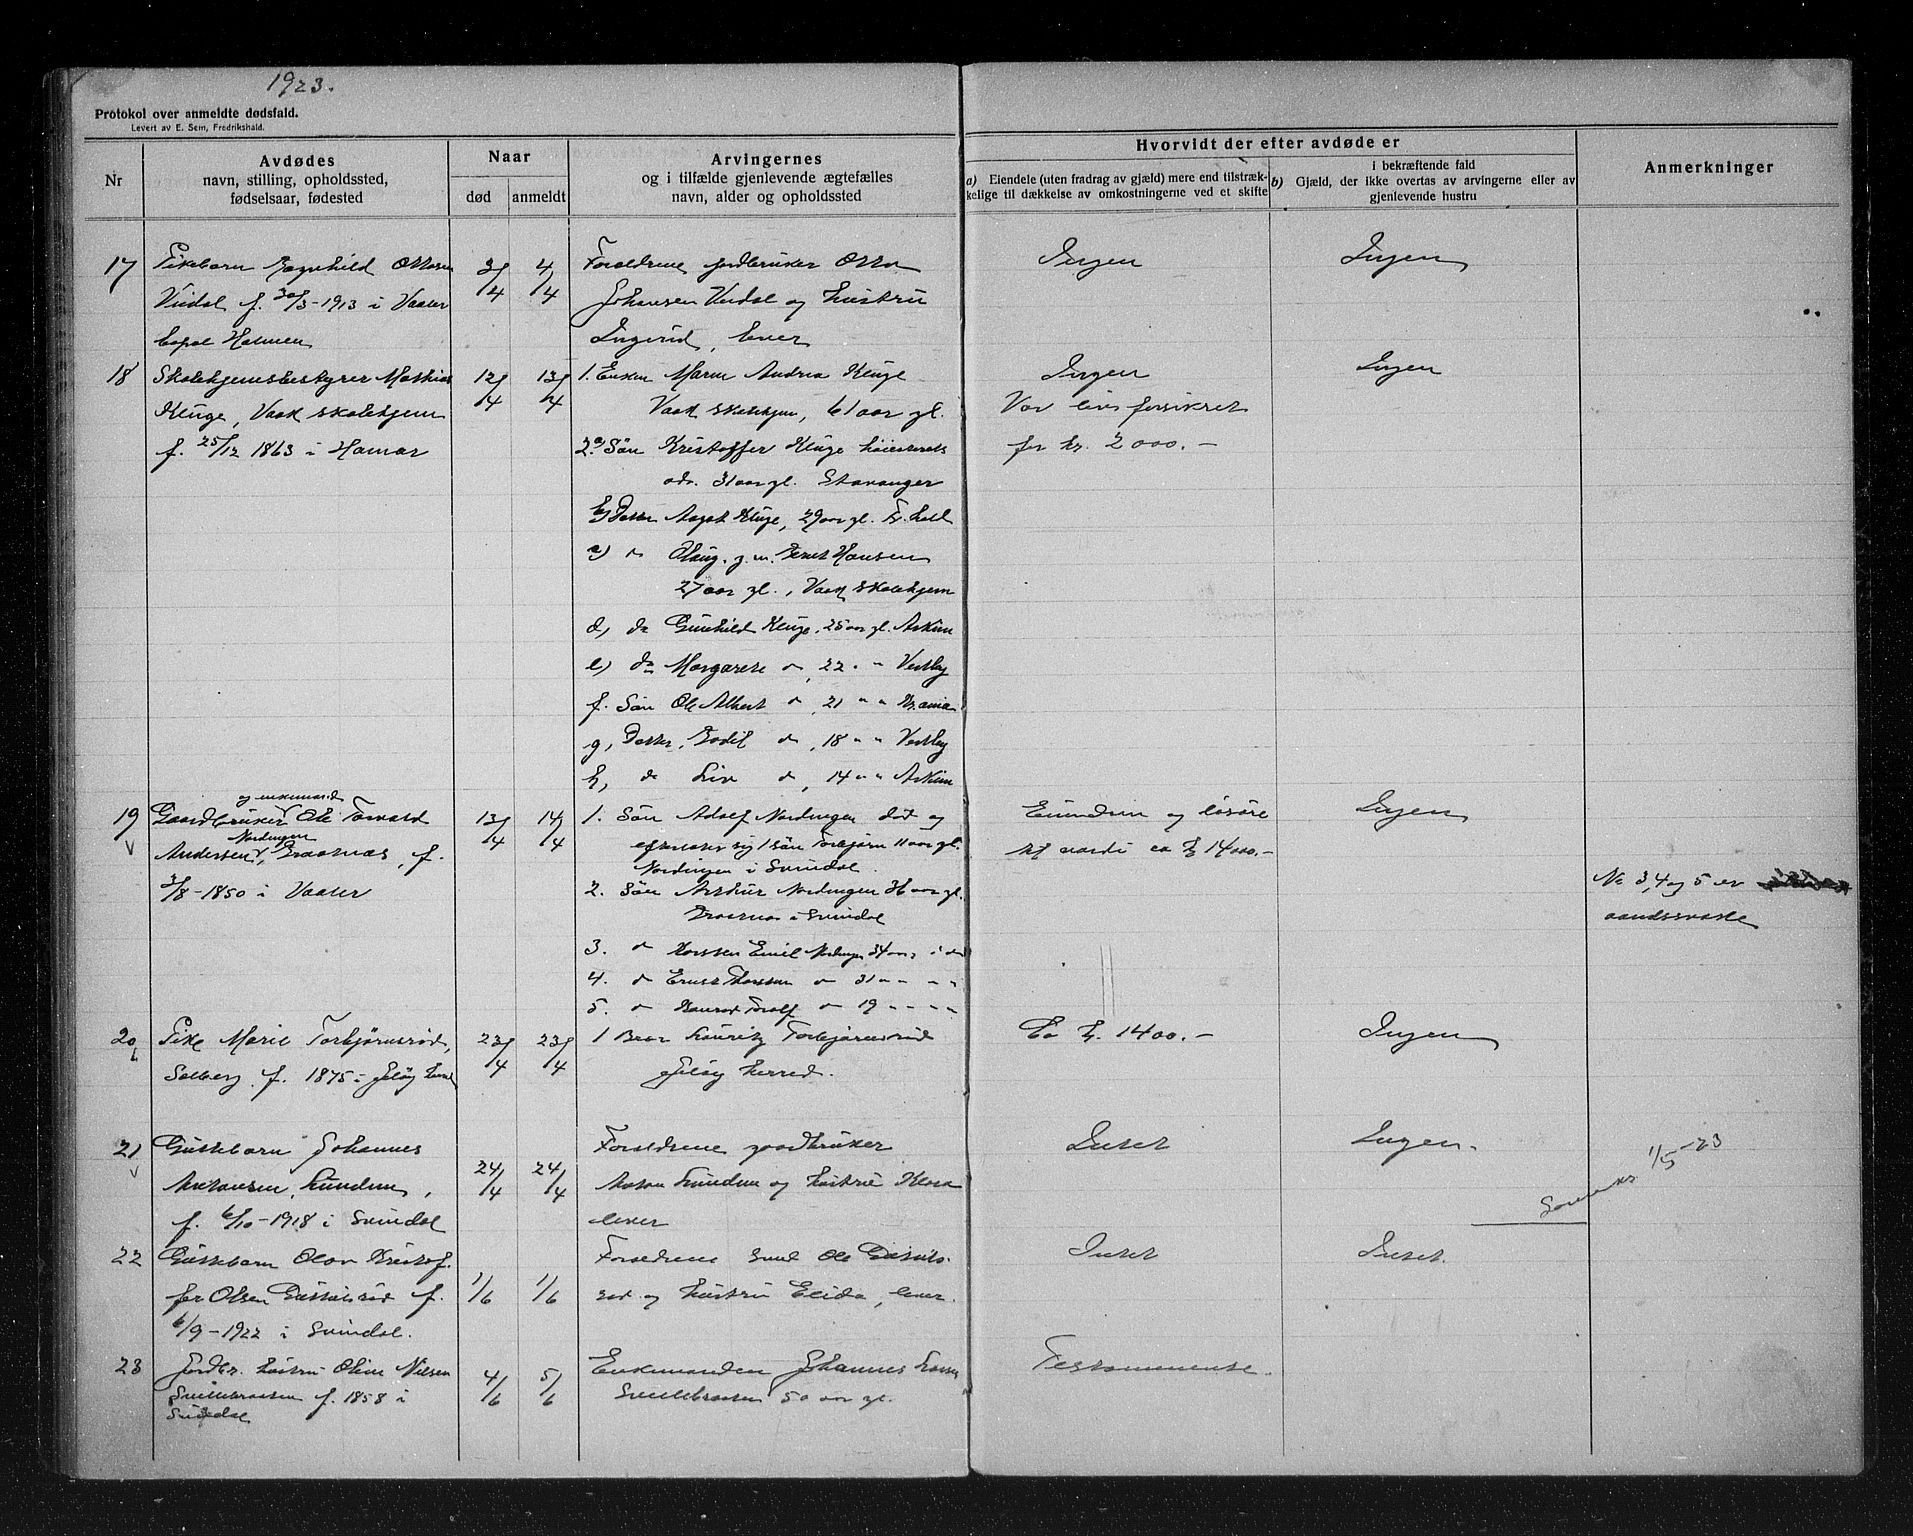 1923.
Protokol over anmeldte dødsfald.
Levert av E. Sem, Fredrikshald.
Nr
Avdødes
navn, stilling, opholdssted,
fødselsaar, fødested
Naar
død
anmeldt
Arvingernes
og i tilfælde gjenlevende ægtefælles
navn, alder og opholdssted
Hvorvidt der efter avdøde er
a) Eiendele (uten fradrag av gjæld) mere end tilstræk-
kelige til dækkelse av omkostningerne ved et skifte
i bekræftende fald
b) Gjæld, der ikke overtas av arvingerne eller av
gjenlevende hustru
Anmerkninger
17
Pikebarn Ragnhild Ottosen
f. 30/3-1913 i Vaaler
Holmen
3/4
4/4
Forældrene jordbruker Otto
Johansen og hustru
Ingerid, lever
Ingen
Ingen
18
Skolehjemsbestyrer Mathias
Kluge, Vaak skolehjem
f. 25/12 1863 i Hamar
12/4
13/4
1. Enken Maren Andrea Kluge
Vaak skolehjem, 61 aar gl.
2. a) Søn Kristoffer Kluge høiesterets
adv. 31 aar gl. Stavanger
b) Datter Aagot Kluge, 29 aar gl. Fr.hald
c) do g.m. Hansen
27 aar gl., Vaak skolehjem
d, do Gunhild Kluge, 25 aar gl. Askim
e) do Margarete do, 22 " Vestby
f. Søn Ole Albert do, 21 " " Kr.ania
g, Datter, Bodil do, 18 " " Vestby
h, do Liv do, 14 " " Askim
Ingen
Var livsforsikret
for kr. 2000.-
Ingen
19
og enkemand
Gaardbruker Ole Torvald
Nordengen
Andersen, f.
3/8-1850 i Vaaler
13/4
14/4
1. Søn Adolf Nordengen død og
efterlater sig 1 søn Torbjørn 11 aar gl.
Nordengen i Svindal.
2. Søn Arthur Nordengen 36 aar gl.
i Svindal
3. do Emil Nordengen 34 aar i do
4. do Ernst do 31 " " "
5. do do 19 " " " "
Eiendom og løsøre
til værdi ca kr 14000.-
Ingen
No 3, 4 og 5 er
aandssvake
20
Pike Marie Torbjørnsrød,
Solberg f. 1875 i Jeløy herred
23/4
23/4
1 Bror Lauritz Torbjørnsrød
Jeløy herred.
Ca kr. 1400.-
Ingen
21
Guttebarn Johannes
Antonsen, Lunden,
f. 6/10-1918 i Svindal
24/4
24/4
Forældrene gaardbruker
Anton Lunden og hustru Klara
lever
Intet
Ingen.
1/5-23
22
Guttebarn Olav Kristof-
fer Olsen f.
6/9-1922 i Svindal.
1/6
1/6
Forældrene Ole
rød og hustru Elida, lever.
Intet
Intet.
23
Jordbr. hustru Oline Nilsen
f. 1858 i
Svindal
4/6
5/6
Enkemanden Johannes
50 aar gl.
Testamente.